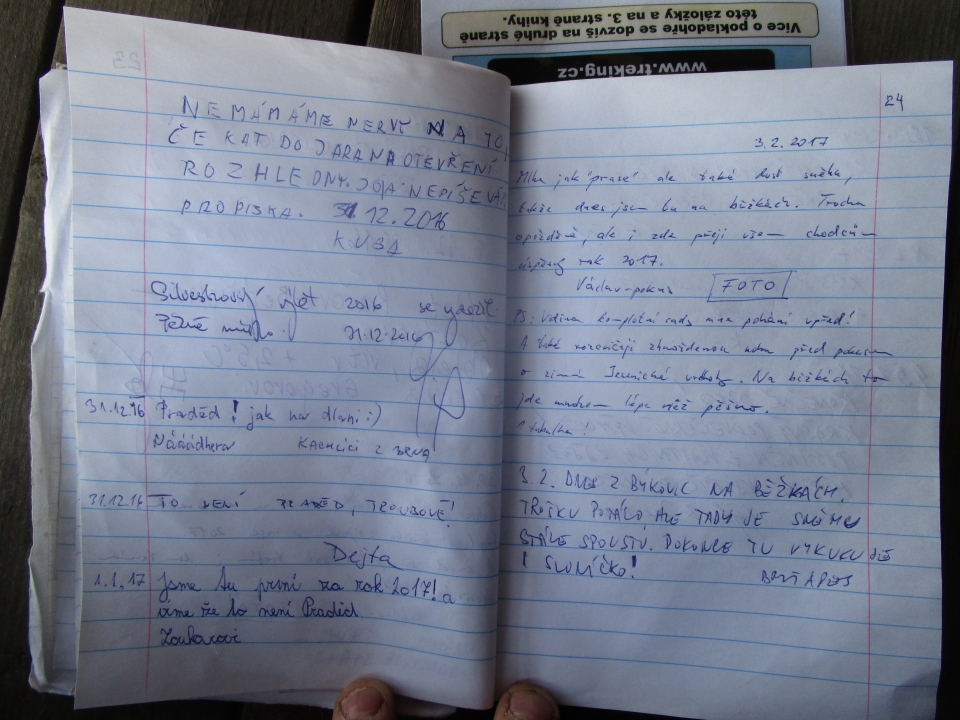 Více o pokladohře se dozvíš na druhé straně
této záložky a na 3. straně knihy.
www.treking.cz
23
NEMÁMÁME NERVY NA TO,
ČEKAT DO JARA NA OTEVŘENÍ
ROZHLEDNY. JO JÁ NEPÍŠE VÁM
PROPISKA. 31.12.2016
KUBA
Silvestrovský výlet 2016 se vydařil.
Pěkné místo. 31.12.2016
31.12.16 Praděd! jak na dlani :)
Nááádhera KACHLÍCI Z BRNA
31.12.16 TO NENÍ PRADĚD, TROUBOVÉ!
Dejta
1.1.17 Jsme tu první za rok 2017! a
víme že to není Praděd
24
3.2.2017
Mlha jak "prase" ale také dost sněhu,
takže dnes jsem tu na běžkách. Trochu
opožděně, ale i zde přeji všem chodcům
úspěšný rok 2017.
Václav-pokus FOTO
PS: Vidina kompletní sady mne pohání vpřed!
A také rozcvičuji zhuntovanou nohu před pokusem
o zimní Jesenické vrcholy. Na běžkách to
jde mnohem lépe než pěšmo.
1 tabulka!
3.2. DNES Z BÝKOVIC NA BĚŽKÁCH.
TROŠKU POTÁLO, ALE TADY JE SNĚHU
STÁLE SPOUSTU. DOKONCE TU VYKUKUJE
I SLUNÍČKO!